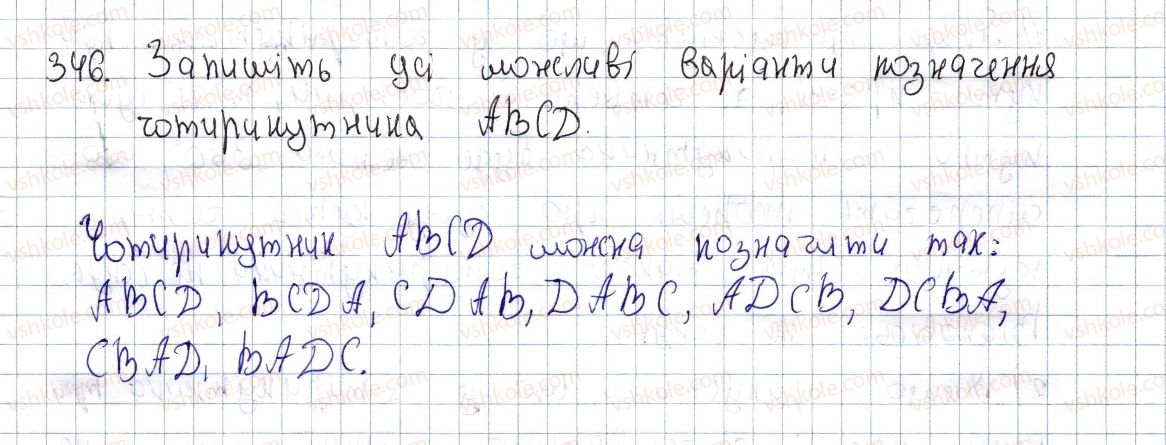 346. Запишіть усі можливі варіанти позначення
чотирикутника ABCD.
Чотирикутник ABCD можна позначити так:
ABCD, BCDA, CDAB, DABC, ADCB, DCBA,
CBAD, BADC.